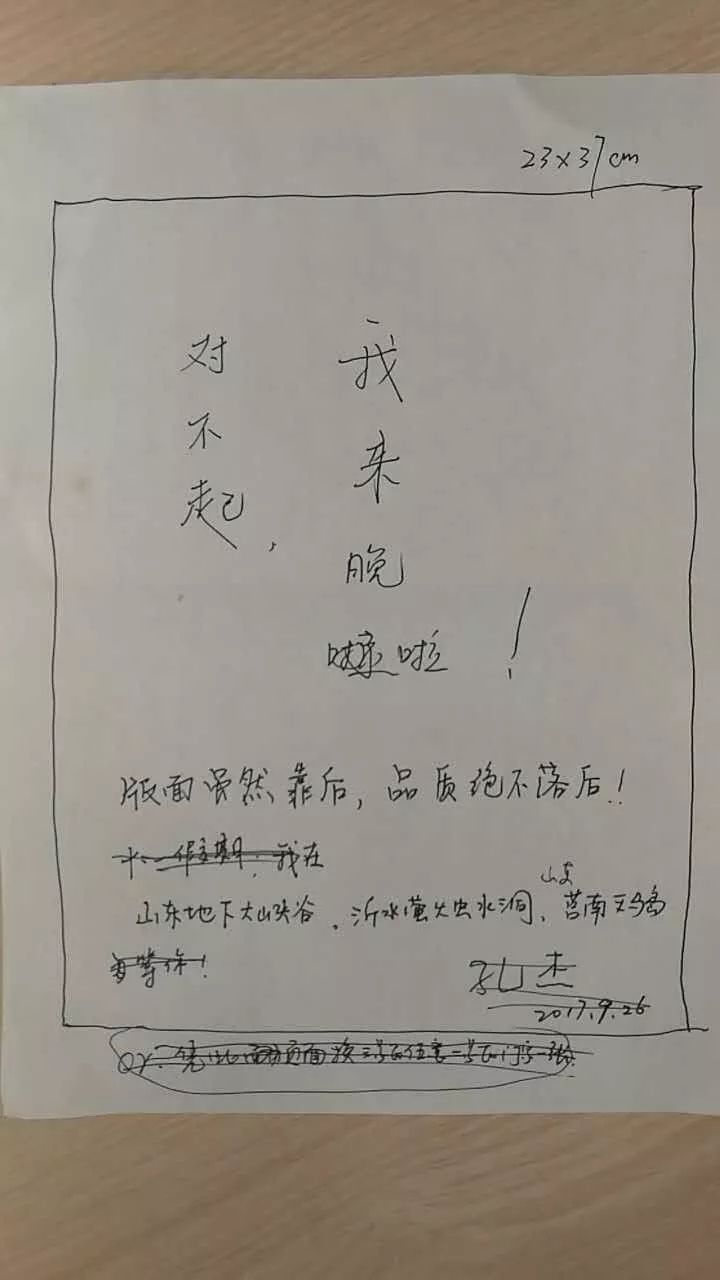 23×37cm
对不起，
我来晚啦！
版面虽然靠后，品质绝不落后！
十一假期，我在
山东
山东地下大峡谷、沂水萤火虫水洞、莒南天马岛
等你！
2017.9.26